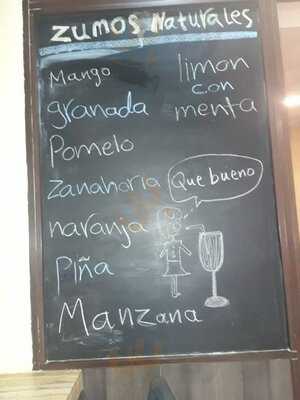 zumos Naturales
Mango
granada
Pomelo
zanahoria
naranja
Piña
Manzana
limon
con
menta
Que bueno